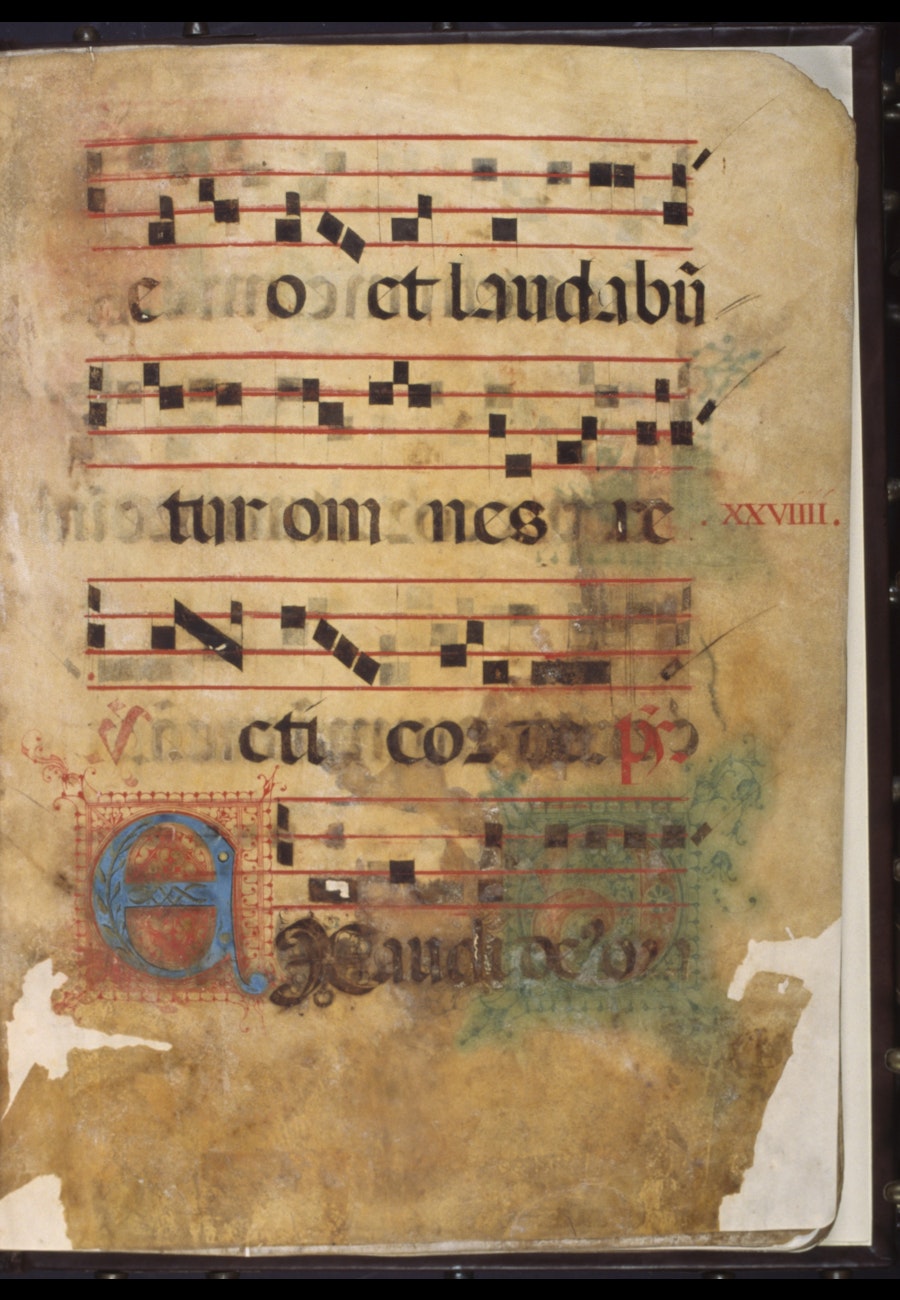 e o et laudabū
tur om nes re
.XXVIIII.
cti cor de. ps̄
EXaudi de' or